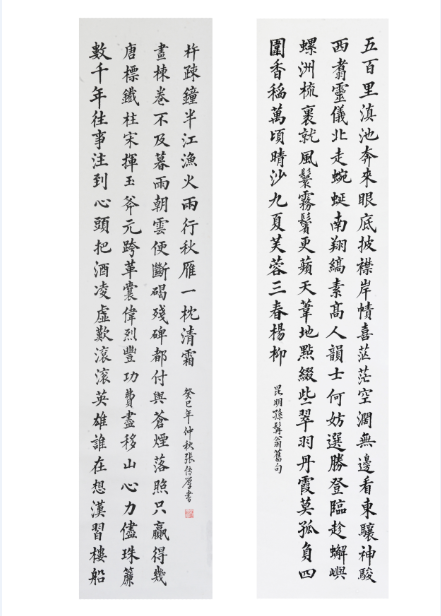 五百里滇池奔來眼底披襟岸幘喜茫茫空濶無邊看東驤神駿
西翥靈儀北走蜿蜒南翔縞素高人韻士何妨選勝登臨趁蠏嶼
螺洲梳裹就風鬟霧鬢更蘋天葦地點綴些翠羽丹霞莫孤負四
圍香稻萬頃晴沙九夏芙蓉三春楊柳
昆明孫髯翁舊句
數千年往事注到心頭把酒凌虛歎滾滾英雄誰在想漢習樓船
唐標鐵柱宋揮玉斧元跨革囊偉烈豐功費盡移山心力儘珠簾
畫棟卷不及暮雨朝雲便斷碣殘碑都付與蒼煙落照只贏得幾
杵疎鐘半江漁火兩行秋雁一枕清霜
癸巳年仲秋張厚書